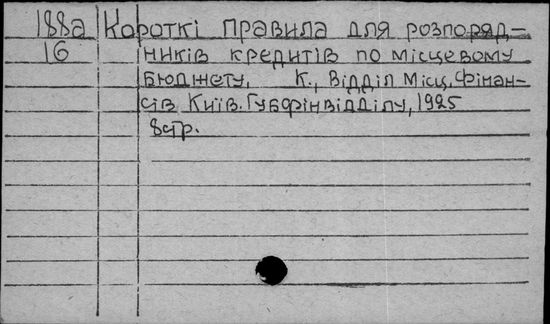 188а Короткі правила для розпоряд-
16 ників кредитів по місцевому
бюджету, К., Відділ Місц. Фінан-
сів Київ. Губфінвідділу, 1925
8стр.